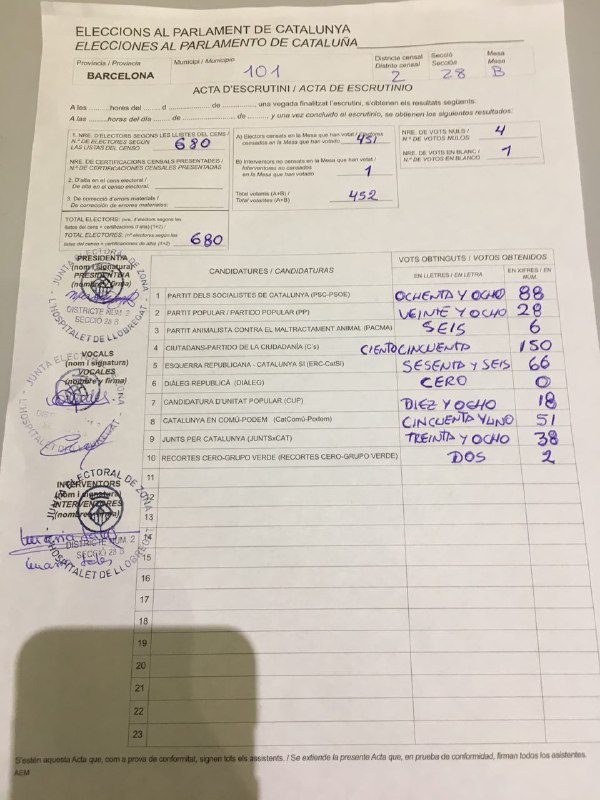 ELECCIONS AL PARLAMENT DE CATALUNYA
ELECCIONES AL PARLAMENTO DE CATALUÑA
Província / Provincia
BARCELONA
Municipi / Municipio
101
Districte censal
Distrito censal
2
Secció
Sección
28
Mesa
Mesa
B
ACTA D'ESCRUTINI / ACTA DE ESCRUTINIO
A les ........hores del ........ d ........ de ........, una vegada finalitzat l'escrutini, s'obtenen els resultats següents:
A las ........hores del día ........ de ........ de ........, y una vez concluido el escrutinio, se obtienen los siguientes resultados:
1. NRE. D'ELECTORS SEGONS LES LLISTES DEL CENS /
N.º DE ELECTORES SEGÚN
LAS LISTAS DEL CENSO
680
NRE. DE CERTIFICACIONS CENSALS PRESENTADES /
N.º DE CERTIFICACIONES CENSALES PRESENTADAS
2. D'alta en el cens electoral /
De alta en el censo electoral:
3. De correcció d'errors materials /
De corrección de errores materiales:
TOTAL ELECTORS: (nre. d'electors segons les
llistes del cens + certificacions d'alta) (1+2) /
TOTAL ELECTORES: (nº electores según las
listas del censo + certificaciones de alta) (1+2)
680
A) Electors censats en la Mesa que han votat / Electores
censados en la Mesa que han votado
451
B) Interventors no censats en la Mesa que han votat /
Interventores no censados
en la Mesa que han votado
1
Total votants (A+B) /
Total votantes (A+B)
452
NRE. DE VOTS NULS /
N.º DE VOTOS NULOS
4
NRE. DE VOTS EN BLANC /
N.º DE VOTOS EN BLANCO
1
PRESIDENT/A
(nom i signatura)
PRESIDENTE/A
(nombre y firma)
JUNTA ELECTORAL DE ZONA
L'HOSPITALET DE LLOBREGAT
DISTRICTE NÚM. 2
SECCIÓ 28 B
VOCALS
(nom i signatura)
VOCALES
(nombre y firma)
INTERVENTORS
(nom i signatura)
INTERVENTORES
(nombre y firma)
JUNTA ELECTORAL DE ZONA
DISTRICTE NÚM. 2
SECCIÓ 28 B
L'HOSPITALET DE LLOBREGAT
CANDIDATURES / CANDIDATURAS
VOTS OBTINGUTS / VOTOS OBTENIDOS
EN LLETRES / EN LETRA
EN XIFRES / EN NÚM.
1 PARTIT DELS SOCIALISTES DE CATALUNYA (PSC-PSOE) OCHENTA Y OCHO 88
2 PARTIT POPULAR / PARTIDO POPULAR (PP) VEINTE Y OCHO 28
3 PARTIT ANIMALISTA CONTRA EL MALTRACTAMENT ANIMAL (PACMA) SEIS 6
4 CIUTADANS-PARTIDO DE LA CIUDADANÍA (C's) CIENTO CINCUENTA 150
5 ESQUERRA REPUBLICANA - CATALUNYA SÍ (ERC-CatSí) SESENTA Y SEIS 66
6 DIÀLEG REPUBLICÀ (DIÀLEG) CERO 0
7 CANDIDATURA D'UNITAT POPULAR (CUP) DIEZ Y OCHO 18
8 CATALUNYA EN COMÚ-PODEM (CatComú-Podem) CINCUENTA Y UNO 51
9 JUNTS PER CATALUNYA (JUNTSxCAT) TREINTA Y OCHO 38
10 RECORTES CERO-GRUPO VERDE (RECORTES CERO-GRUPO VERDE) DOS 2
11
12
13
14
15
16
17
18
19
20
21
22
23
S'estén aquesta Acta que, com a prova de conformitat, signen tots els assistents. / Se extiende la presente Acta que, en prueba de conformidad, firman todos los asistentes.
AEM